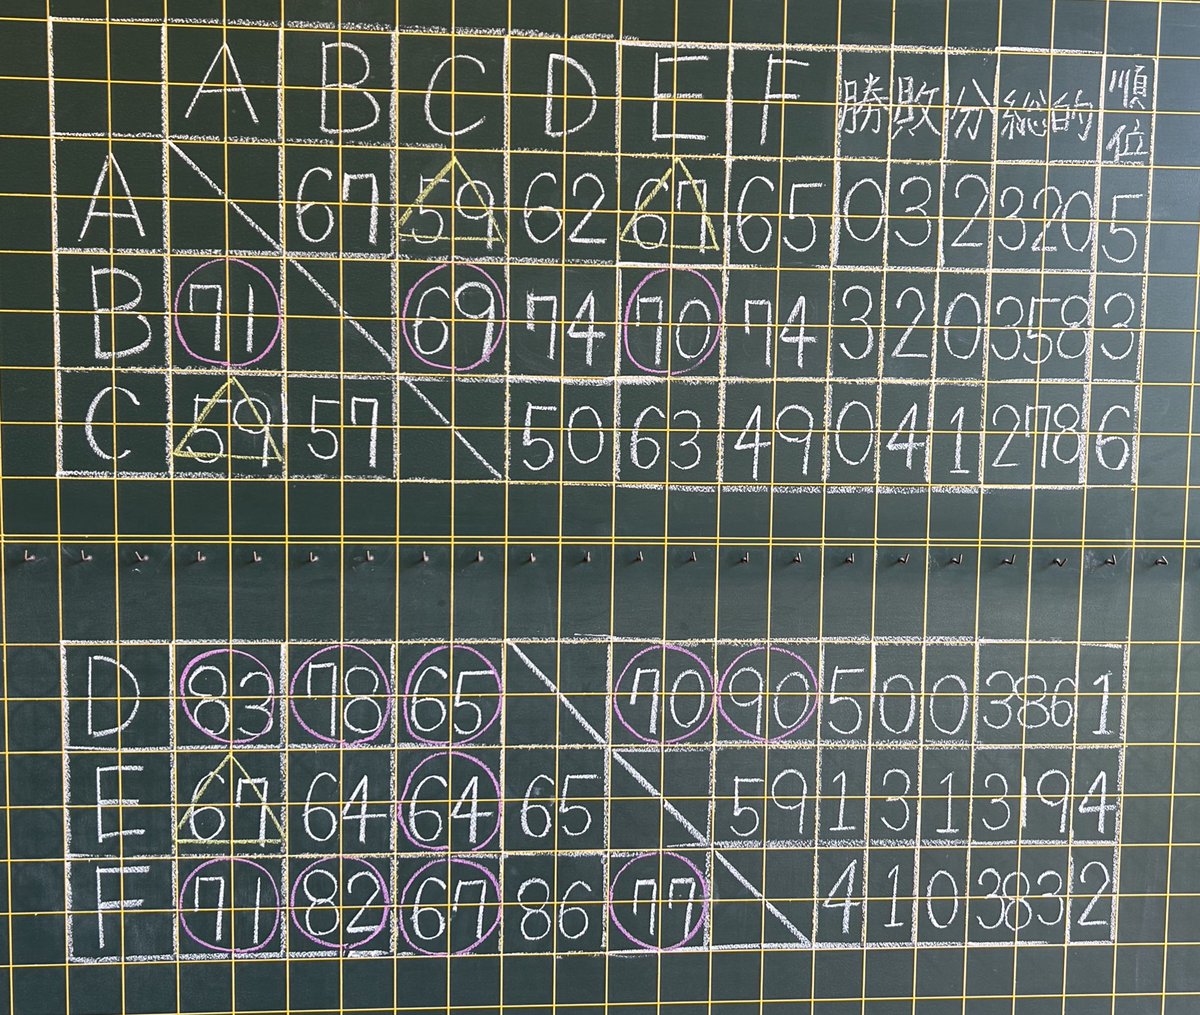 A B C D E F 勝 敗 分 総的 順位
A 67 59 62 67 65 0 3 2 320 5
B 71 69 74 70 74 3 2 0 358 3
C 59 57 50 63 49 0 4 1 278 6
D 83 78 65 70 90 5 0 0 386 1
E 67 64 64 65 59 1 3 1 319 4
F 71 82 67 86 77 4 1 0 383 2